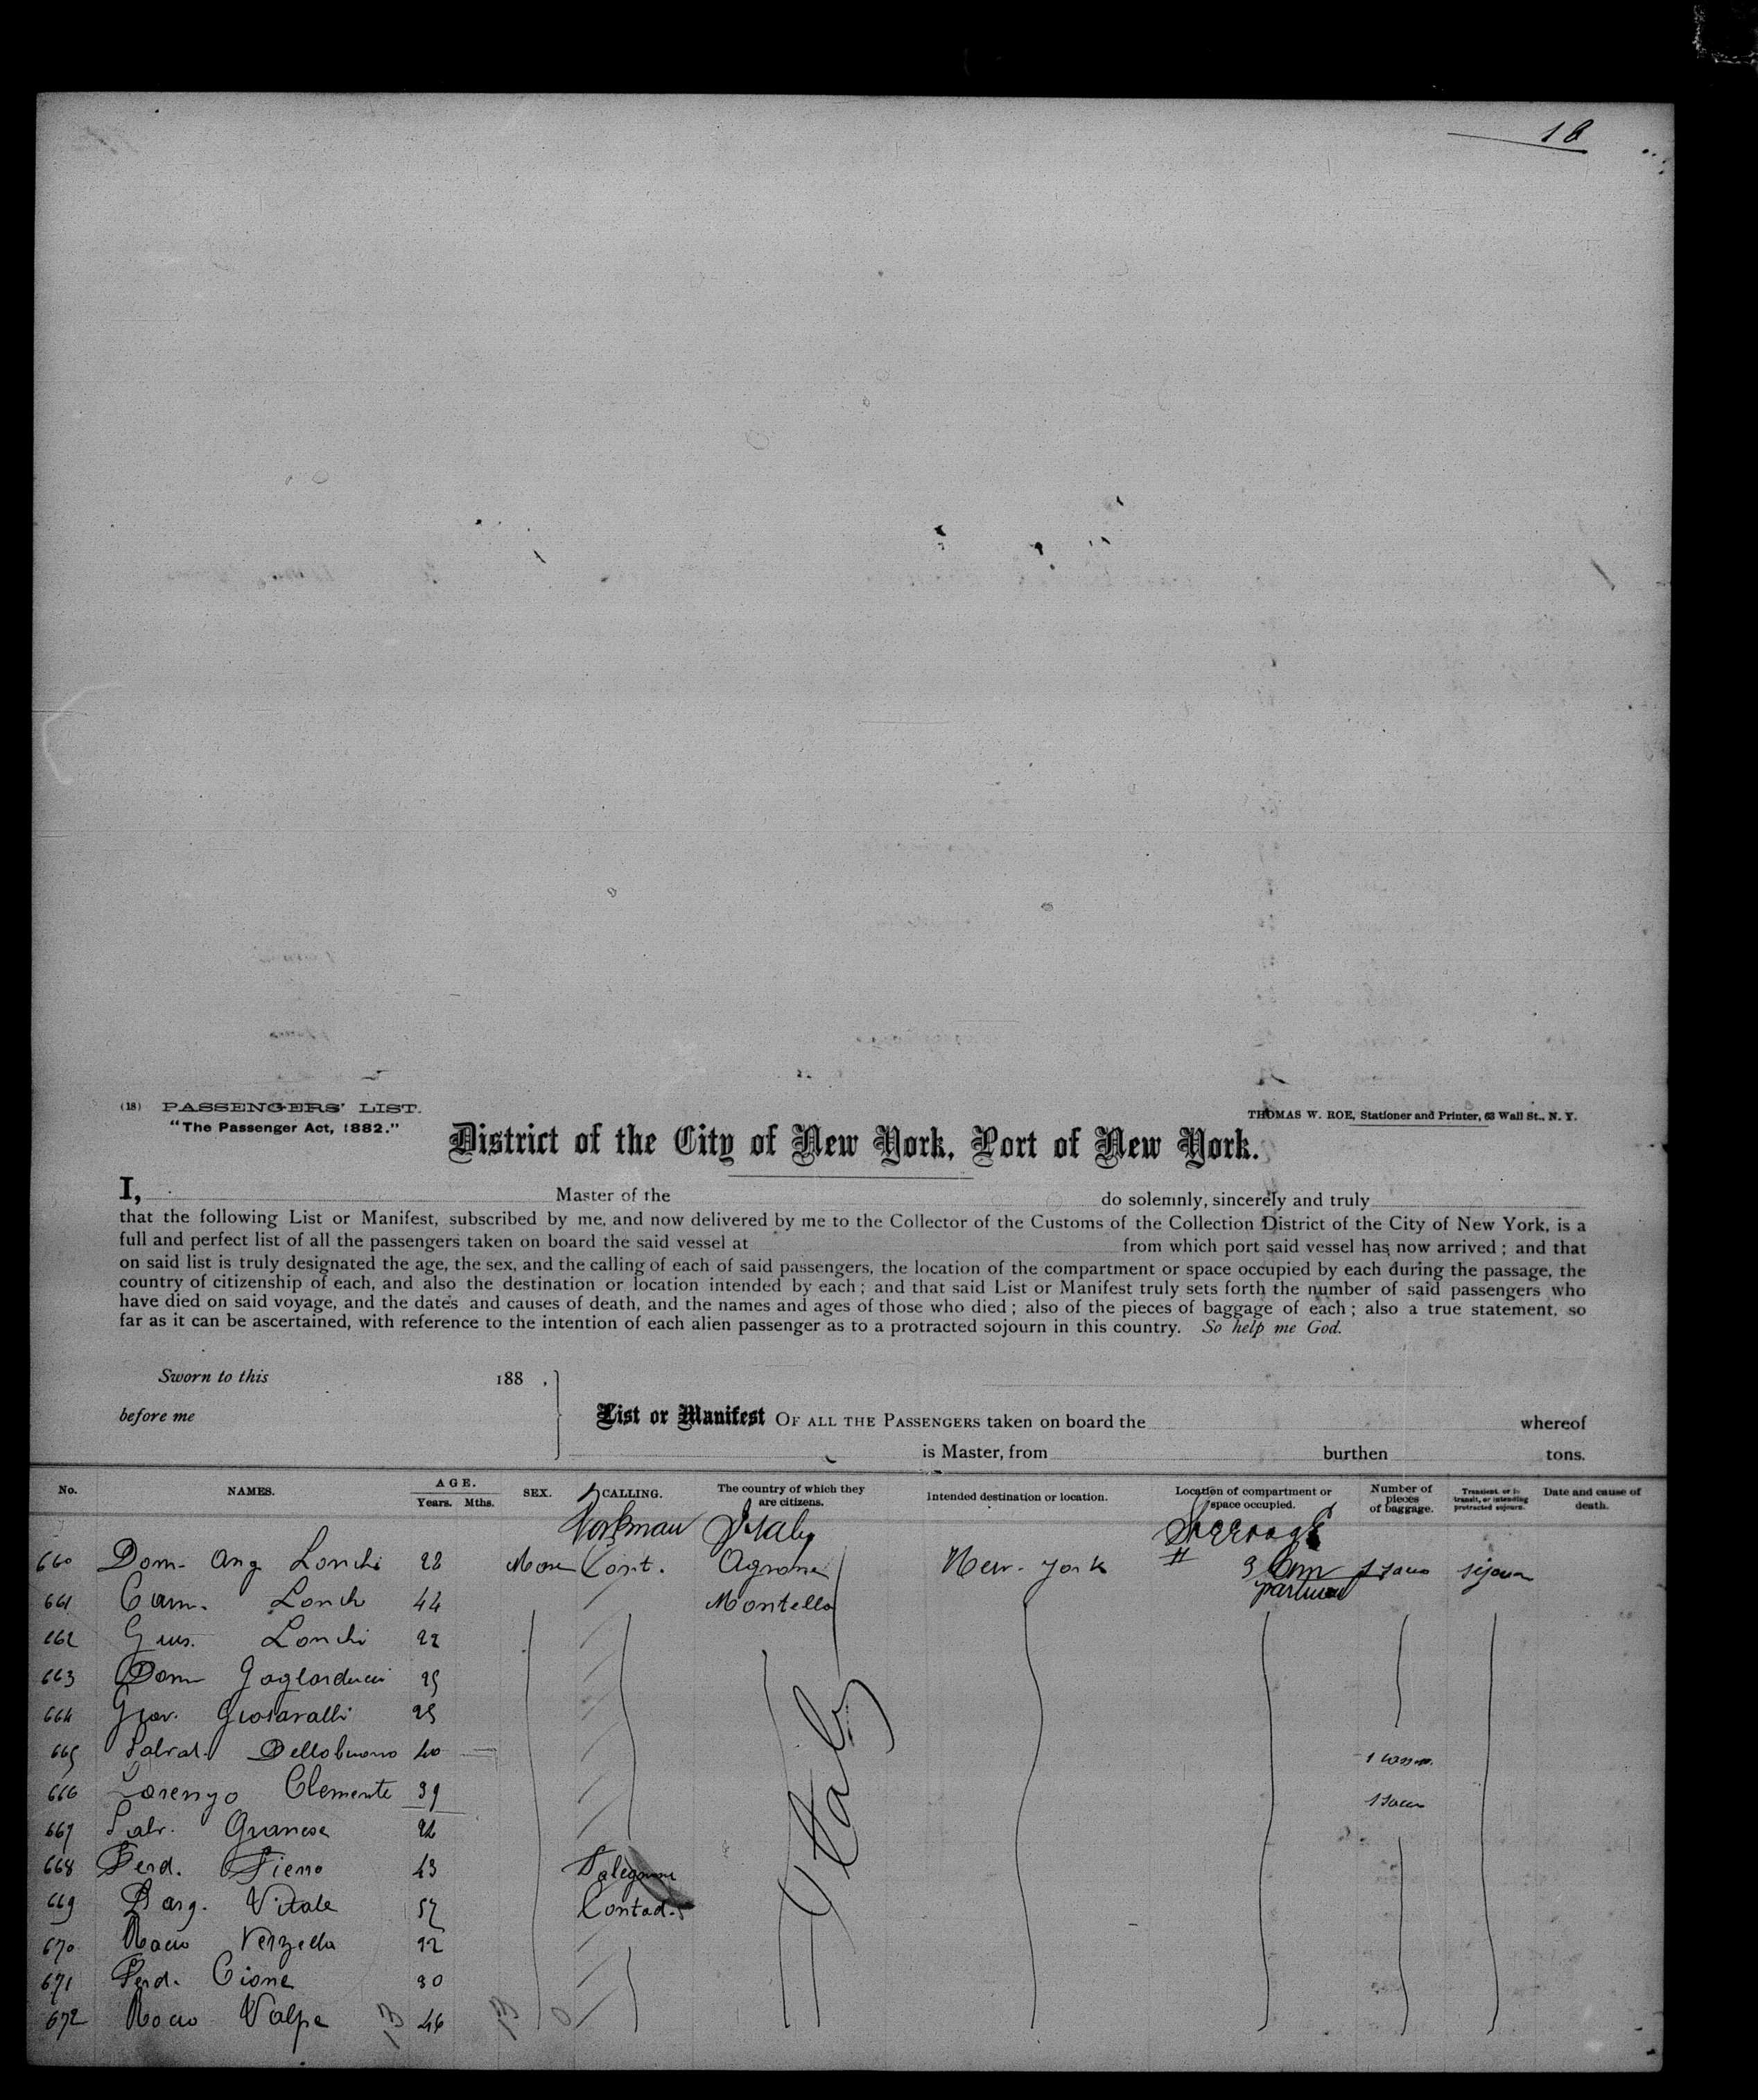 18
(18) PASSENGERS' LIST.
"The Passenger Act, 1882."
THOMAS W. ROE, Stationer and Printer, 63 Wall St., N. Y.
District of the City of New York, Port of New York.
I, Master of the do solemnly, sincerely and truly
that the following List or Manifest, subscribed by me, and now delivered by me to the Collector of the Customs of the Collection District of the City of New York, is a
full and perfect list of all the passengers taken on board the said vessel at from which port said vessel has now arrived ; and that
on said list is truly designated the age, the sex, and the calling of each of said passengers, the location of the compartment or space occupied by each during the passage, the
country of citizenship of each, and also the destination or location intended by each ; and that said List or Manifest truly sets forth the number of said passengers who
have died on said voyage, and the dates and causes of death, and the names and ages of those who died ; also of the pieces of baggage of each ; also a true statement, so
far as it can be ascertained, with reference to the intention of each alien passenger as to a protracted sojourn in this country. So help me God.
Sworn to this 188 ,
before me
List or Manifest OF ALL THE PASSENGERS taken on board the whereof
is Master, from burthen tons.
No. NAMES. AGE. Years. Mths. SEX. CALLING. The country of which they are citizens. Intended destination or location. Location of compartment or space occupied. Number of pieces of baggage. Transient, or in transit, or intending protracted sojourn. Date and cause of death.
Workman Italy Steerage
660 Dom. Ang Lonchi 28 Cont. Agnone New-York 3
661 Carm. Lonch 44 Montella
662 Gius. Lonchi 22
663 Dom Gagliarducci 25
664 Giov. 25
665 Salvat. Dellobuono 40
666 Lorenzo Clemente 39
667 Salv. Granese
668 Ferd. Fierro 43
669 Vitale 57 Contad.
670 Rocco Verzella 22
671 Ferd. Cione 30
672 Rocco Volpe 46
Italy
13 13 0